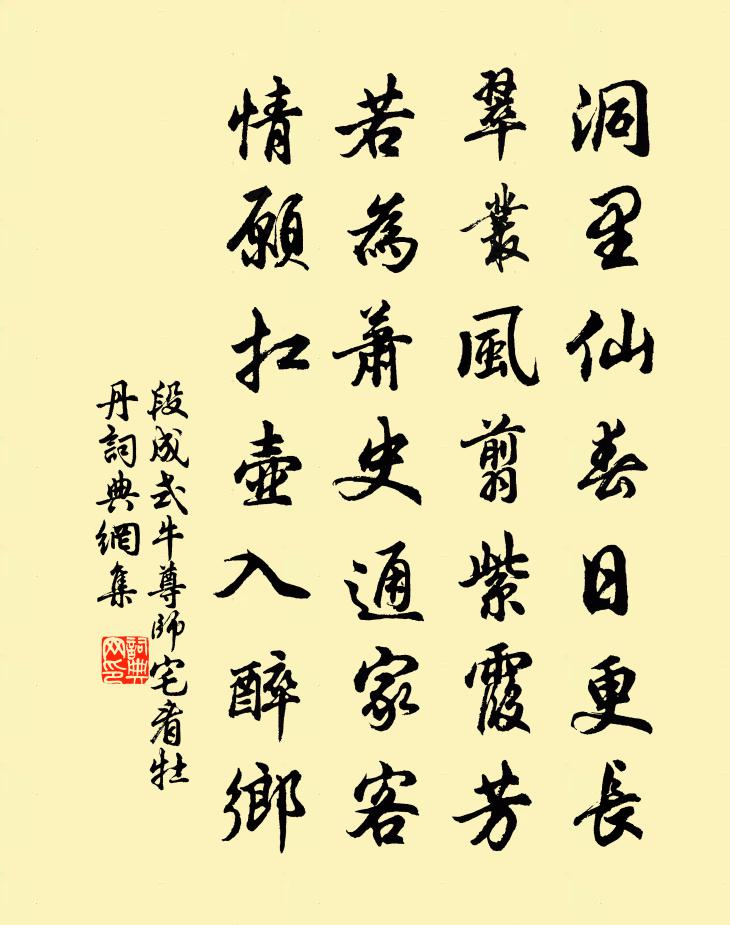 洞里仙春日更長
翠叢風剪紫霞芳
若為蕭史通家客
情願扛壺入醉鄉
段成式牛尊師宅看牡
丹詞典網集
詞典
网印